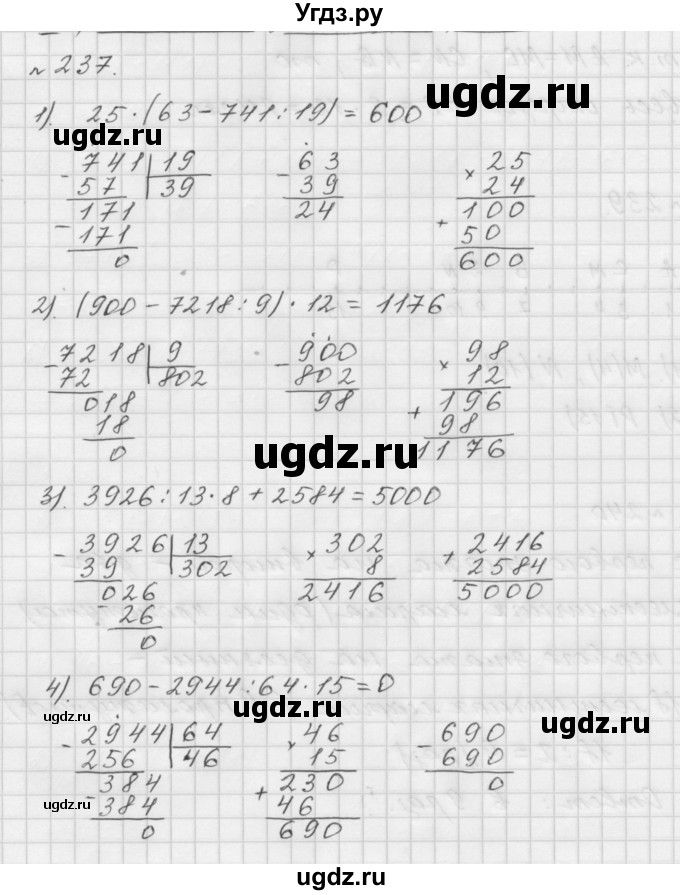 Угдз.ру
№237.
1). 25·(63-741:19)=600
741 | 19
57 | 39
171
171
0
- 63
39
24
× 25
24
100
+ 50
600
2). (900-7218:9)·12=1176
- 7218 | 9
72 | 802
018
18
0
- 900
802
98
× 98
12
196
+ 98
1176
3). 3926:13·8+2584=5000
- 3926 | 13
39 | 302
026
- 26
0
× 302
8
2416
+ 2416
2584
5000
4). 690-2944:64·15=0
- 2944 | 64
256 | 46
384
- 384
0
× 46
15
230
+ 46
690
- 690
690
0
ugdz.ru
ugdz.ru
ugdz.ru
ugdz.ru
ugdz.ru
ugdz.ru
ugdz.ru
ugdz.ru
ugdz.ru
ugdz.ru